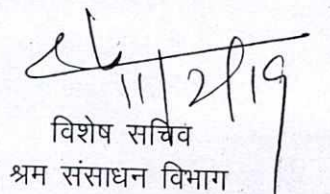 11/2/19
विशेष सचिव
श्रम संसाधन विभाग